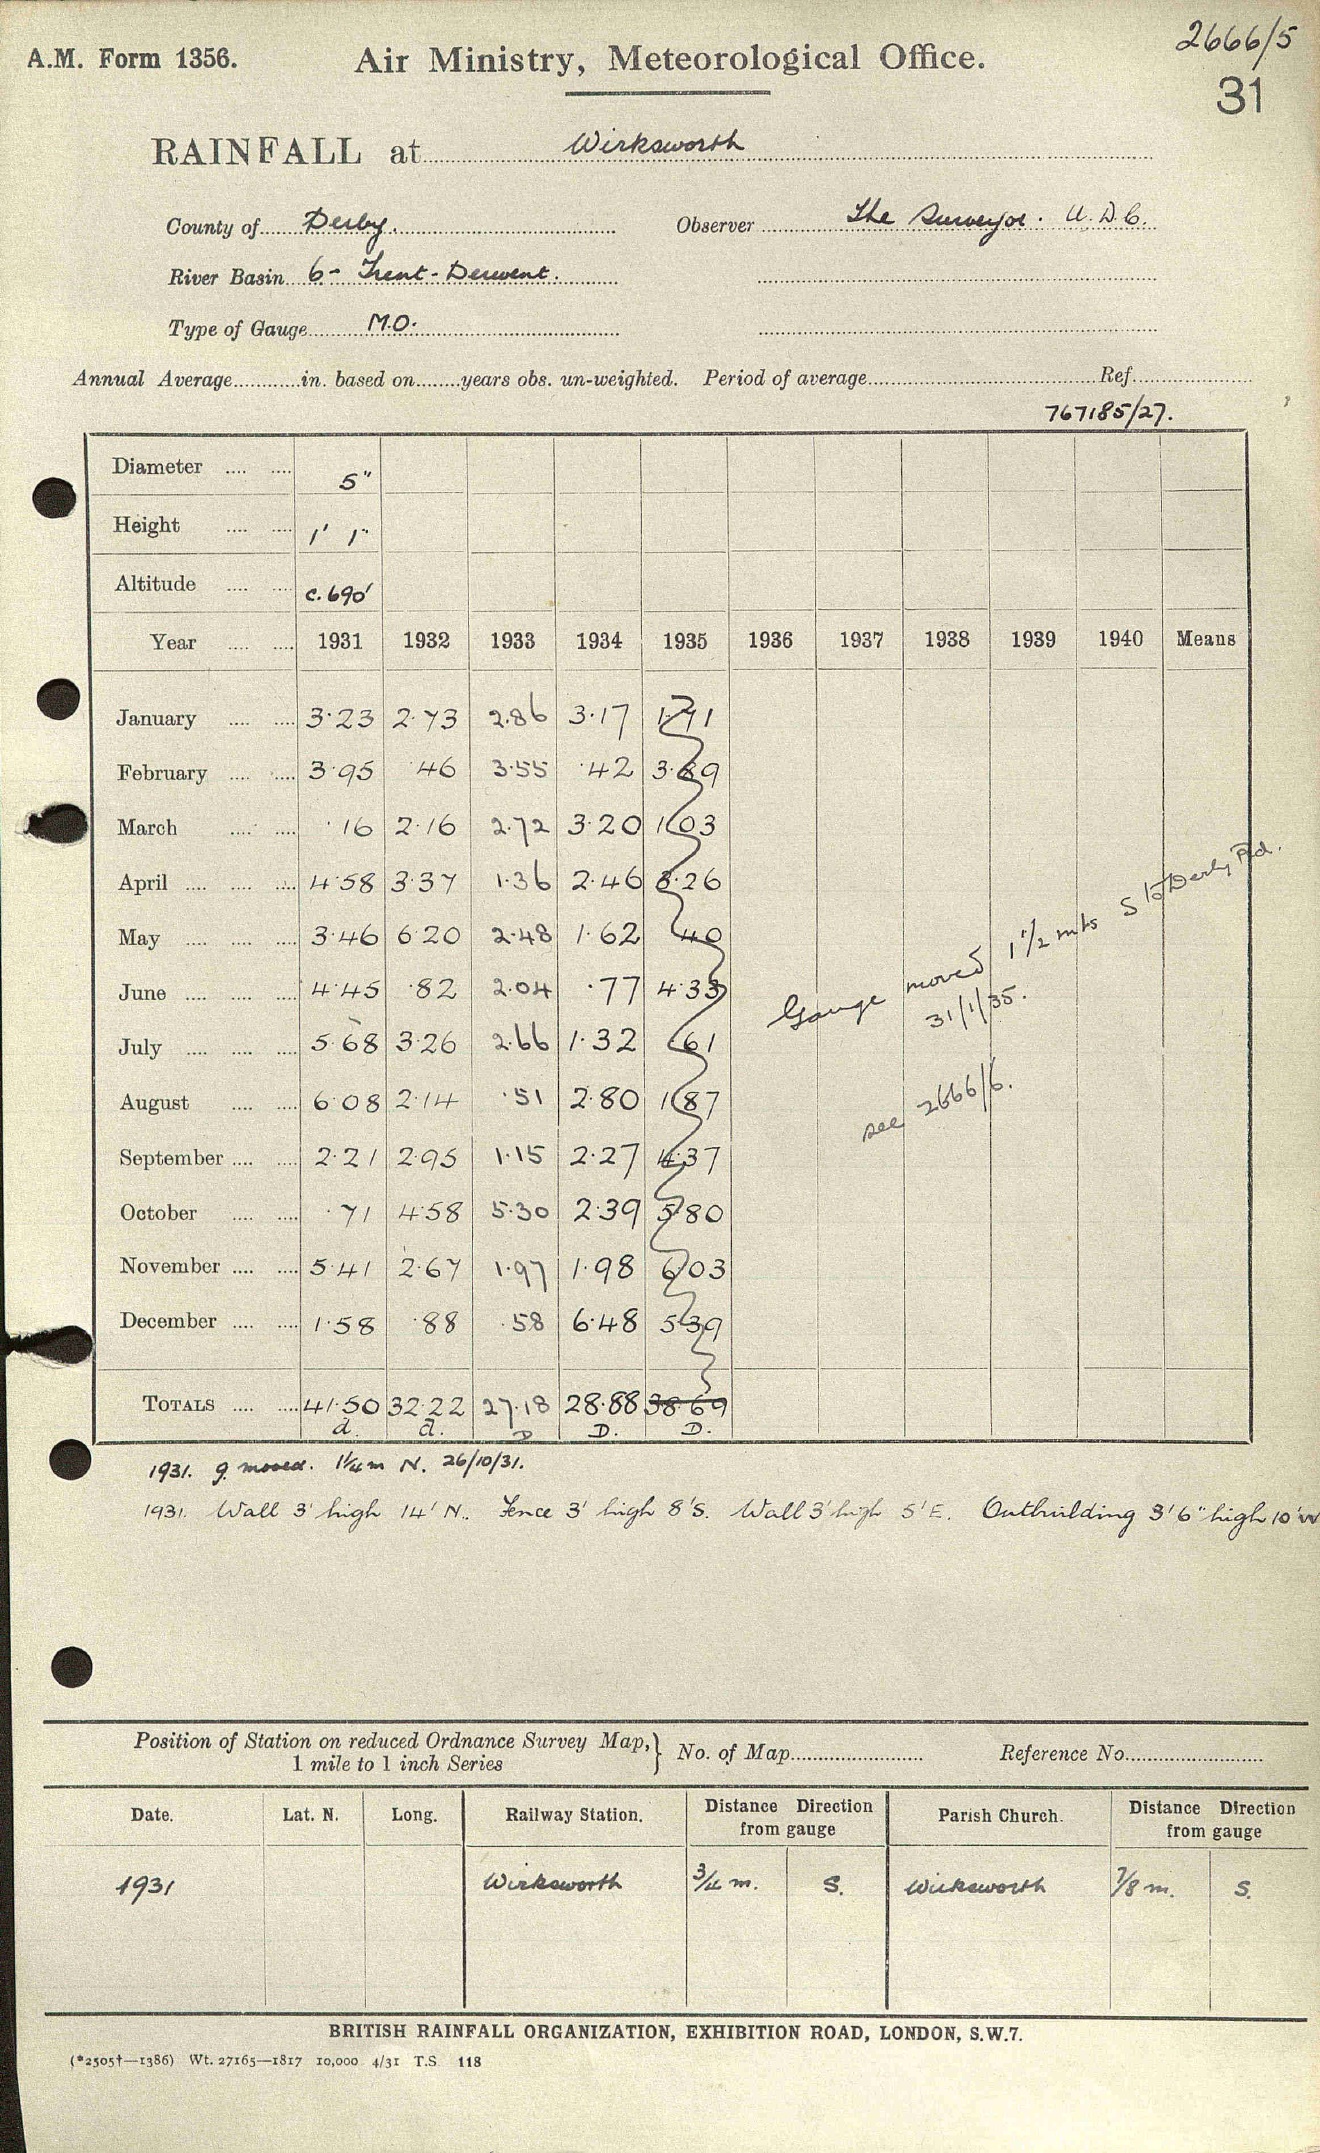 2666/5
A.M. Form 1356. Air Ministry, Meteorological Office.
31
RAINFALL at Wirksworth
County of Derby. Observer The Surveyor. U.D.C.
River Basin 6- Trent-Derwent.
Type of Gauge M.O.
Annual Average in. based on years obs. un-weighted. Period of average Ref.
767185/27.
Diameter 5"
Height 1' 1"
Altitude c.690'
Year 1931 1932 1933 1934 1935 1936 1937 1938 1939 1940 Means
January 3·23 2·73 2·86 3·17 1·71
February 3·95 ·46 3·55 ·42 3·89
March ·16 2·16 2·72 3·20 1·03
April 4·58 3·37 1·36 2·46 3·26
May 3·46 6·20 2·48 1·62 ·40
June 4·45 ·82 2·04 ·77 4·33
July 5·68 3·26 2·66 1·32 ·61
August 6·08 2·14 ·51 2·80 1·87
September 2·21 2·95 1·15 2·27 4·37
October ·71 4·58 5·30 2·39 5·80
November 5·41 2·67 1·97 1·98 6·03
December 1·58 ·88 ·58 6·48 5·39
TOTALS 41·50 32·22 27·18 28·88 38·69
d. d. D D. D.
Gauge moved 1 1/2 mls S to Derby Rd.
31/1/35.
see 2666/6.
1931. g. moved. 1¼ m N. 26/10/31.
1931. Wall 3' high 14' N. Fence 3' high 8' S. Wall 3' high 5' E. Outbuilding 3' 6" high 10' W
Position of Station on reduced Ordnance Survey Map, 1 mile to 1 inch Series } No. of Map Reference No.
Date. Lat. N. Long. Railway Station. Distance Direction from gauge Parish Church. Distance Direction from gauge
1931 Wirksworth 3/4 m. S. Wirksworth 7/8 m. S.
BRITISH RAINFALL ORGANIZATION, EXHIBITION ROAD, LONDON, S.W.7.
(*2505†—1386) Wt. 27165—1817 10,000 4/31 T.S 118